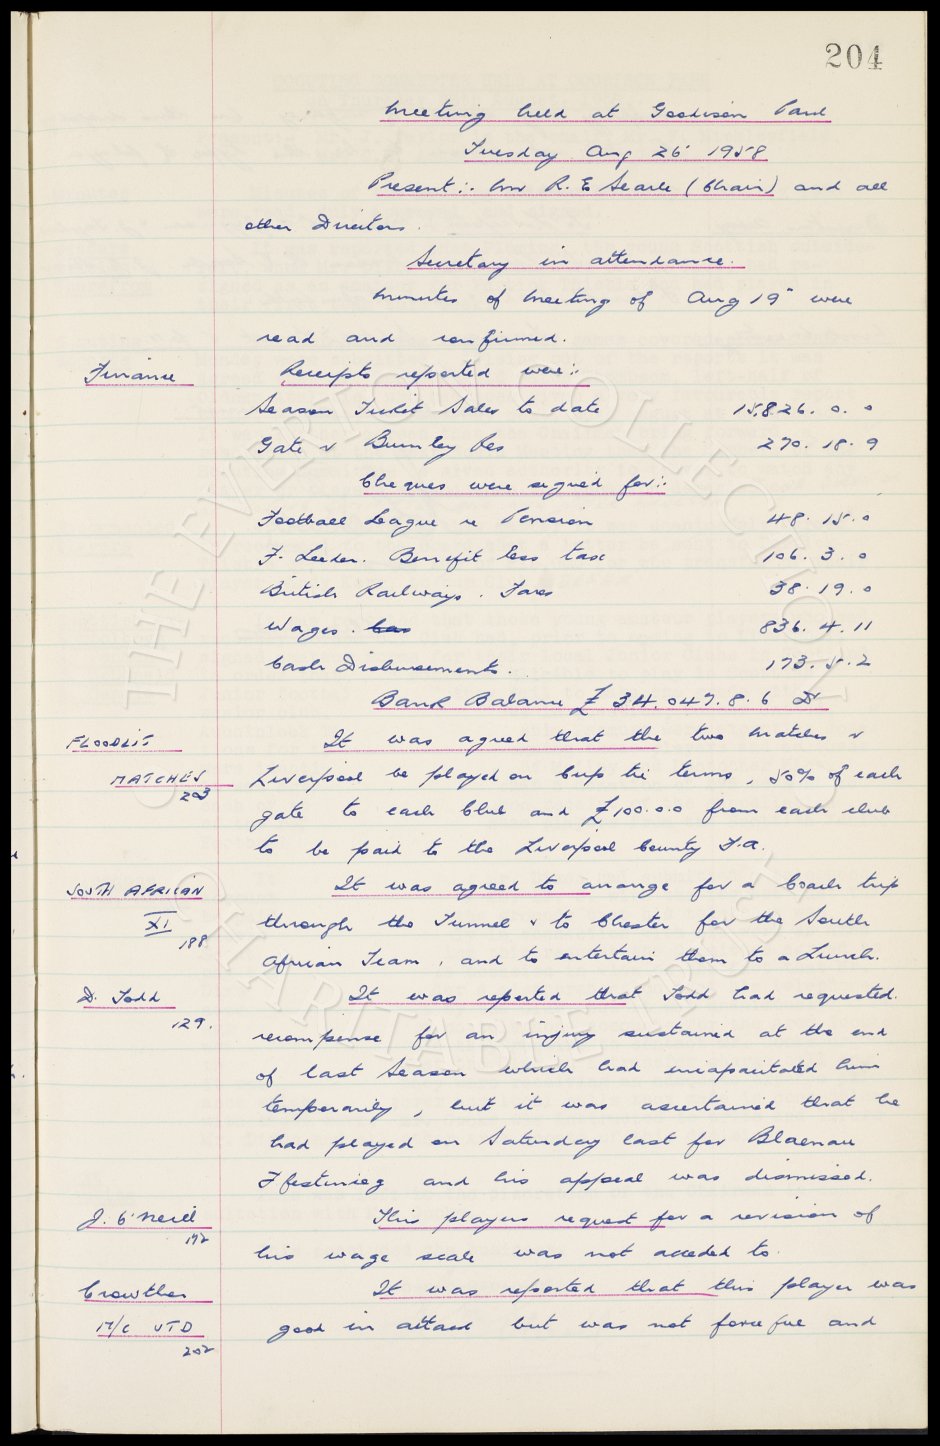 204
Meeting held at Goodison Park
Tuesday Aug 26' 1958
Present :- Mr R. E Searle (Chair) and all
other Directors.
Secretary in attendance.
Minutes of Meeting of Aug 19" were
read and confirmed.
Finance Receipts reported were :-
Season Ticket Sales to date 15,826. 0. 0
Gate v Burnley Res 270. 18. 9
Cheques were signed for :-
Football League re Pension 48. 15. 0
J. Leeder. Benefit less tax 106. 3. 0
British Railways. Fares 38. 19. 0
Wages. 836. 4. 11
Cash Disbursements. 173. 5. 2
Bank Balance £ 34,047. 8. 6 Dr
FLOODLIT It was agreed that the two matches v
MATCHES Liverpool be played on Cup tie terms, 50% of each
203
gate to each Club and £100.0.0 from each club
to be paid to the Liverpool County F.A.
SOUTH AFRICAN It was agreed to arrange for a Coach trip
XI through the Tunnel & to Chester for the South
188
African Team, and to entertain them to a Lunch.
D. Todd It was reported that Todd had requested
129.
recompense for an injury sustained at the end
of last Season which had incapacitated him
temporarily, but it was ascertained that he
had played on Saturday last for Blaenau
Ffestiniog and his appeal was dismissed.
J. O'Neill This players request for a revision of
192
his wage scale was not acceded to.
Crowther It was reported that this player was
M/C UTD good in attack but was not forceful and
202
THE EVERTON COLLECTION
CHARITABLE TRUST